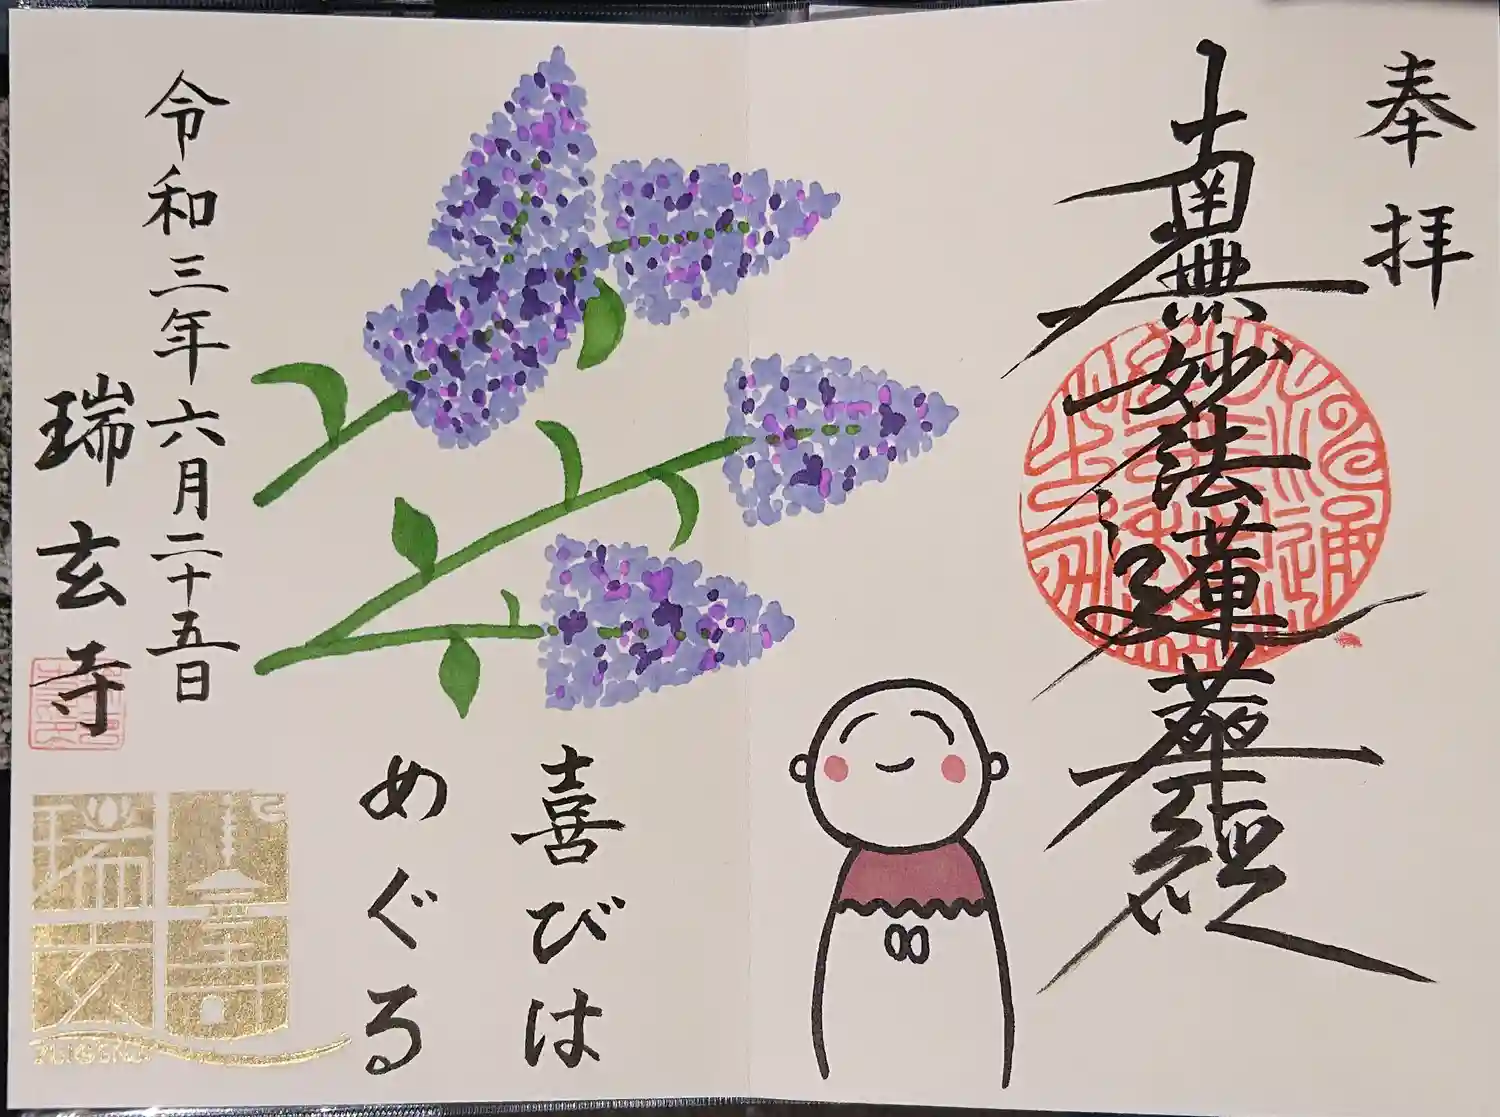 奉拝
南無妙法蓮華経
喜びは
めぐる
令和三年六月二十五日
瑞玄寺
瑞玄寺